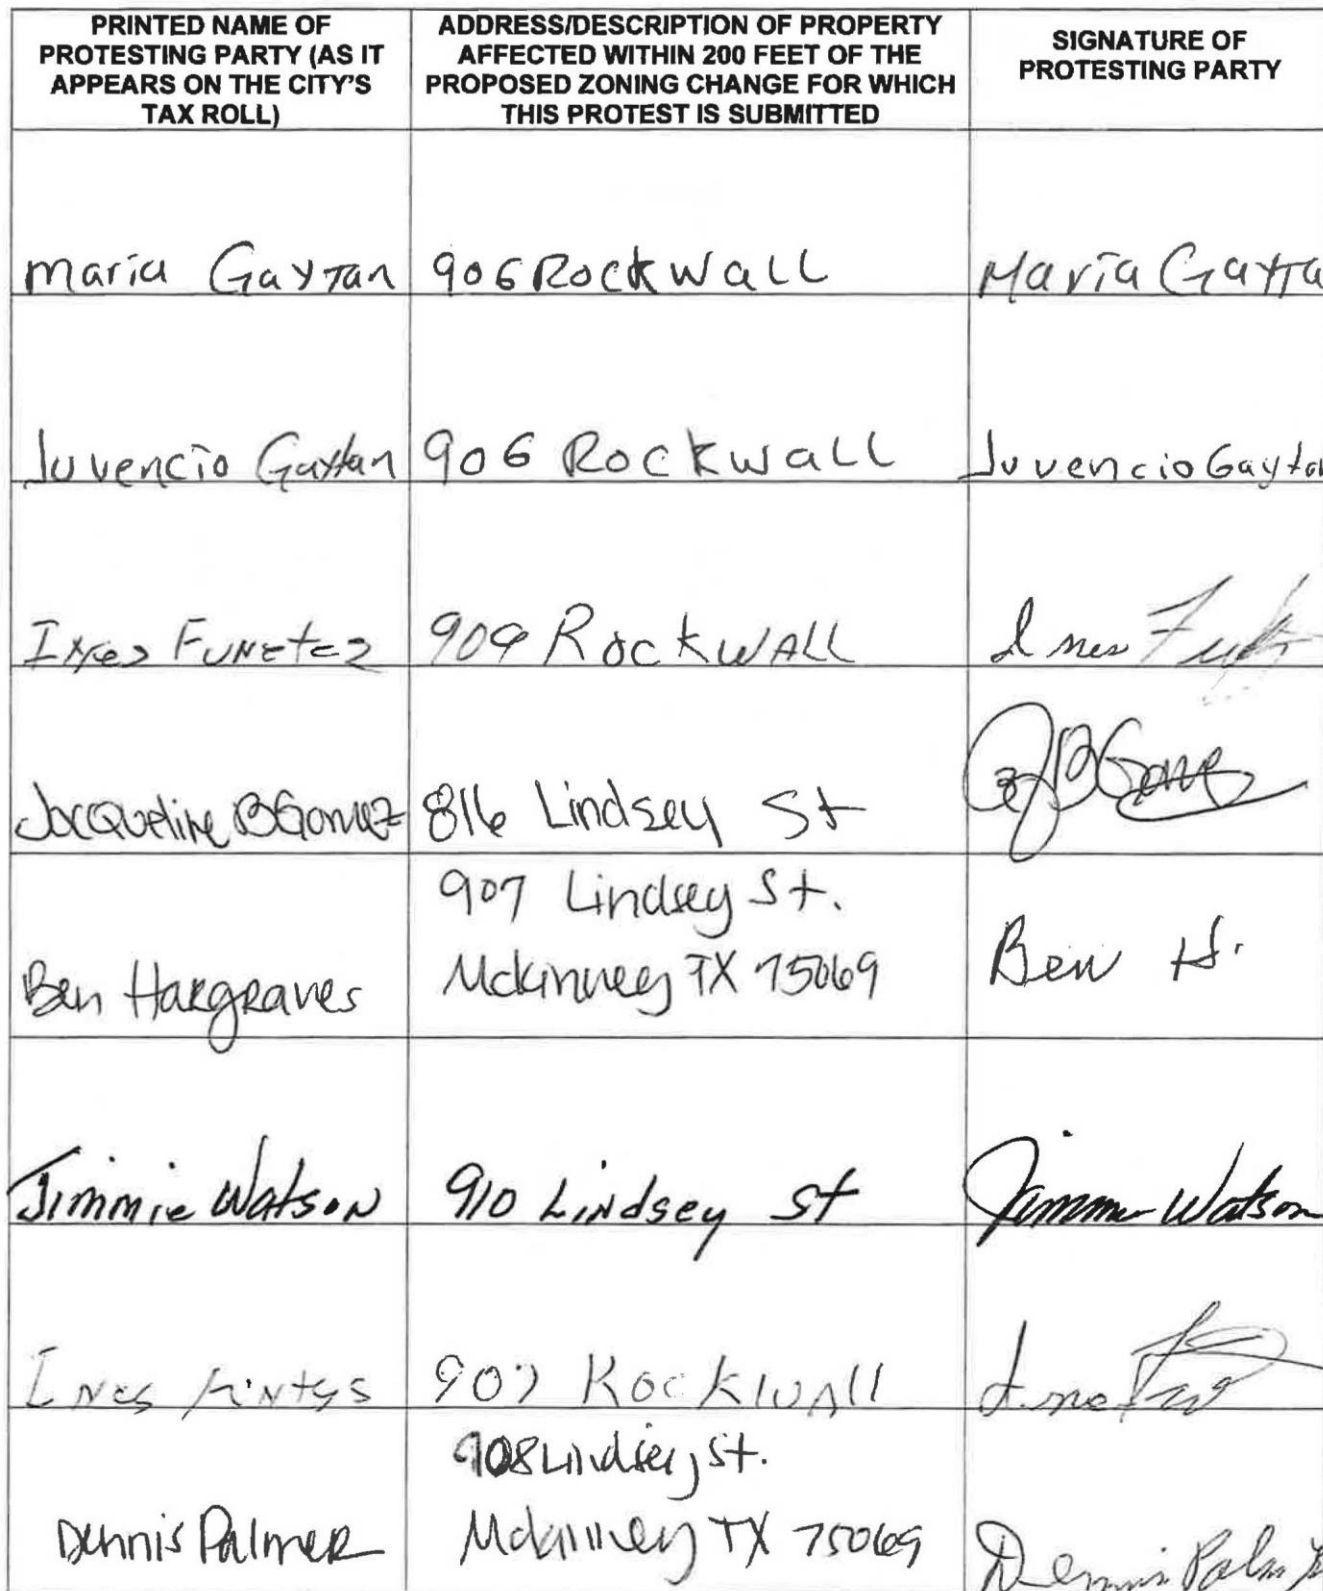 PRINTED NAME OF
PROTESTING PARTY (AS IT
APPEARS ON THE CITY'S
TAX ROLL)
ADDRESS/DESCRIPTION OF PROPERTY
AFFECTED WITHIN 200 FEET OF THE
PROPOSED ZONING CHANGE FOR WHICH
THIS PROTEST IS SUBMITTED
SIGNATURE OF
PROTESTING PARTY
Maria Gaytan
906 Rockwall
Maria Gayta
Juvencio Gaytan
906 Rockwall
Juvencio Gaytan
909 Rockwall
Ines
Jacqueline B Gomez
816 Lindsey St
Ben Hargraves
907 Lindsey St.
Mckinney TX 75069
Ben H.
Jimmie Watson
910 Lindsey St
Jimmie Watson
Ines
Rockwall
Dennis Palmer
908 Lindsey St.
Mckinney TX 75069
Dennis